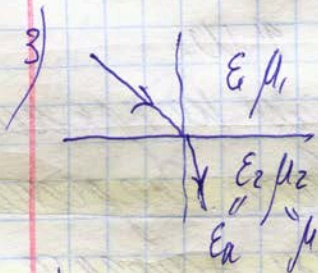 3)
ε₁ μ₁
ε₂ μ₂
" "
εₐ μ